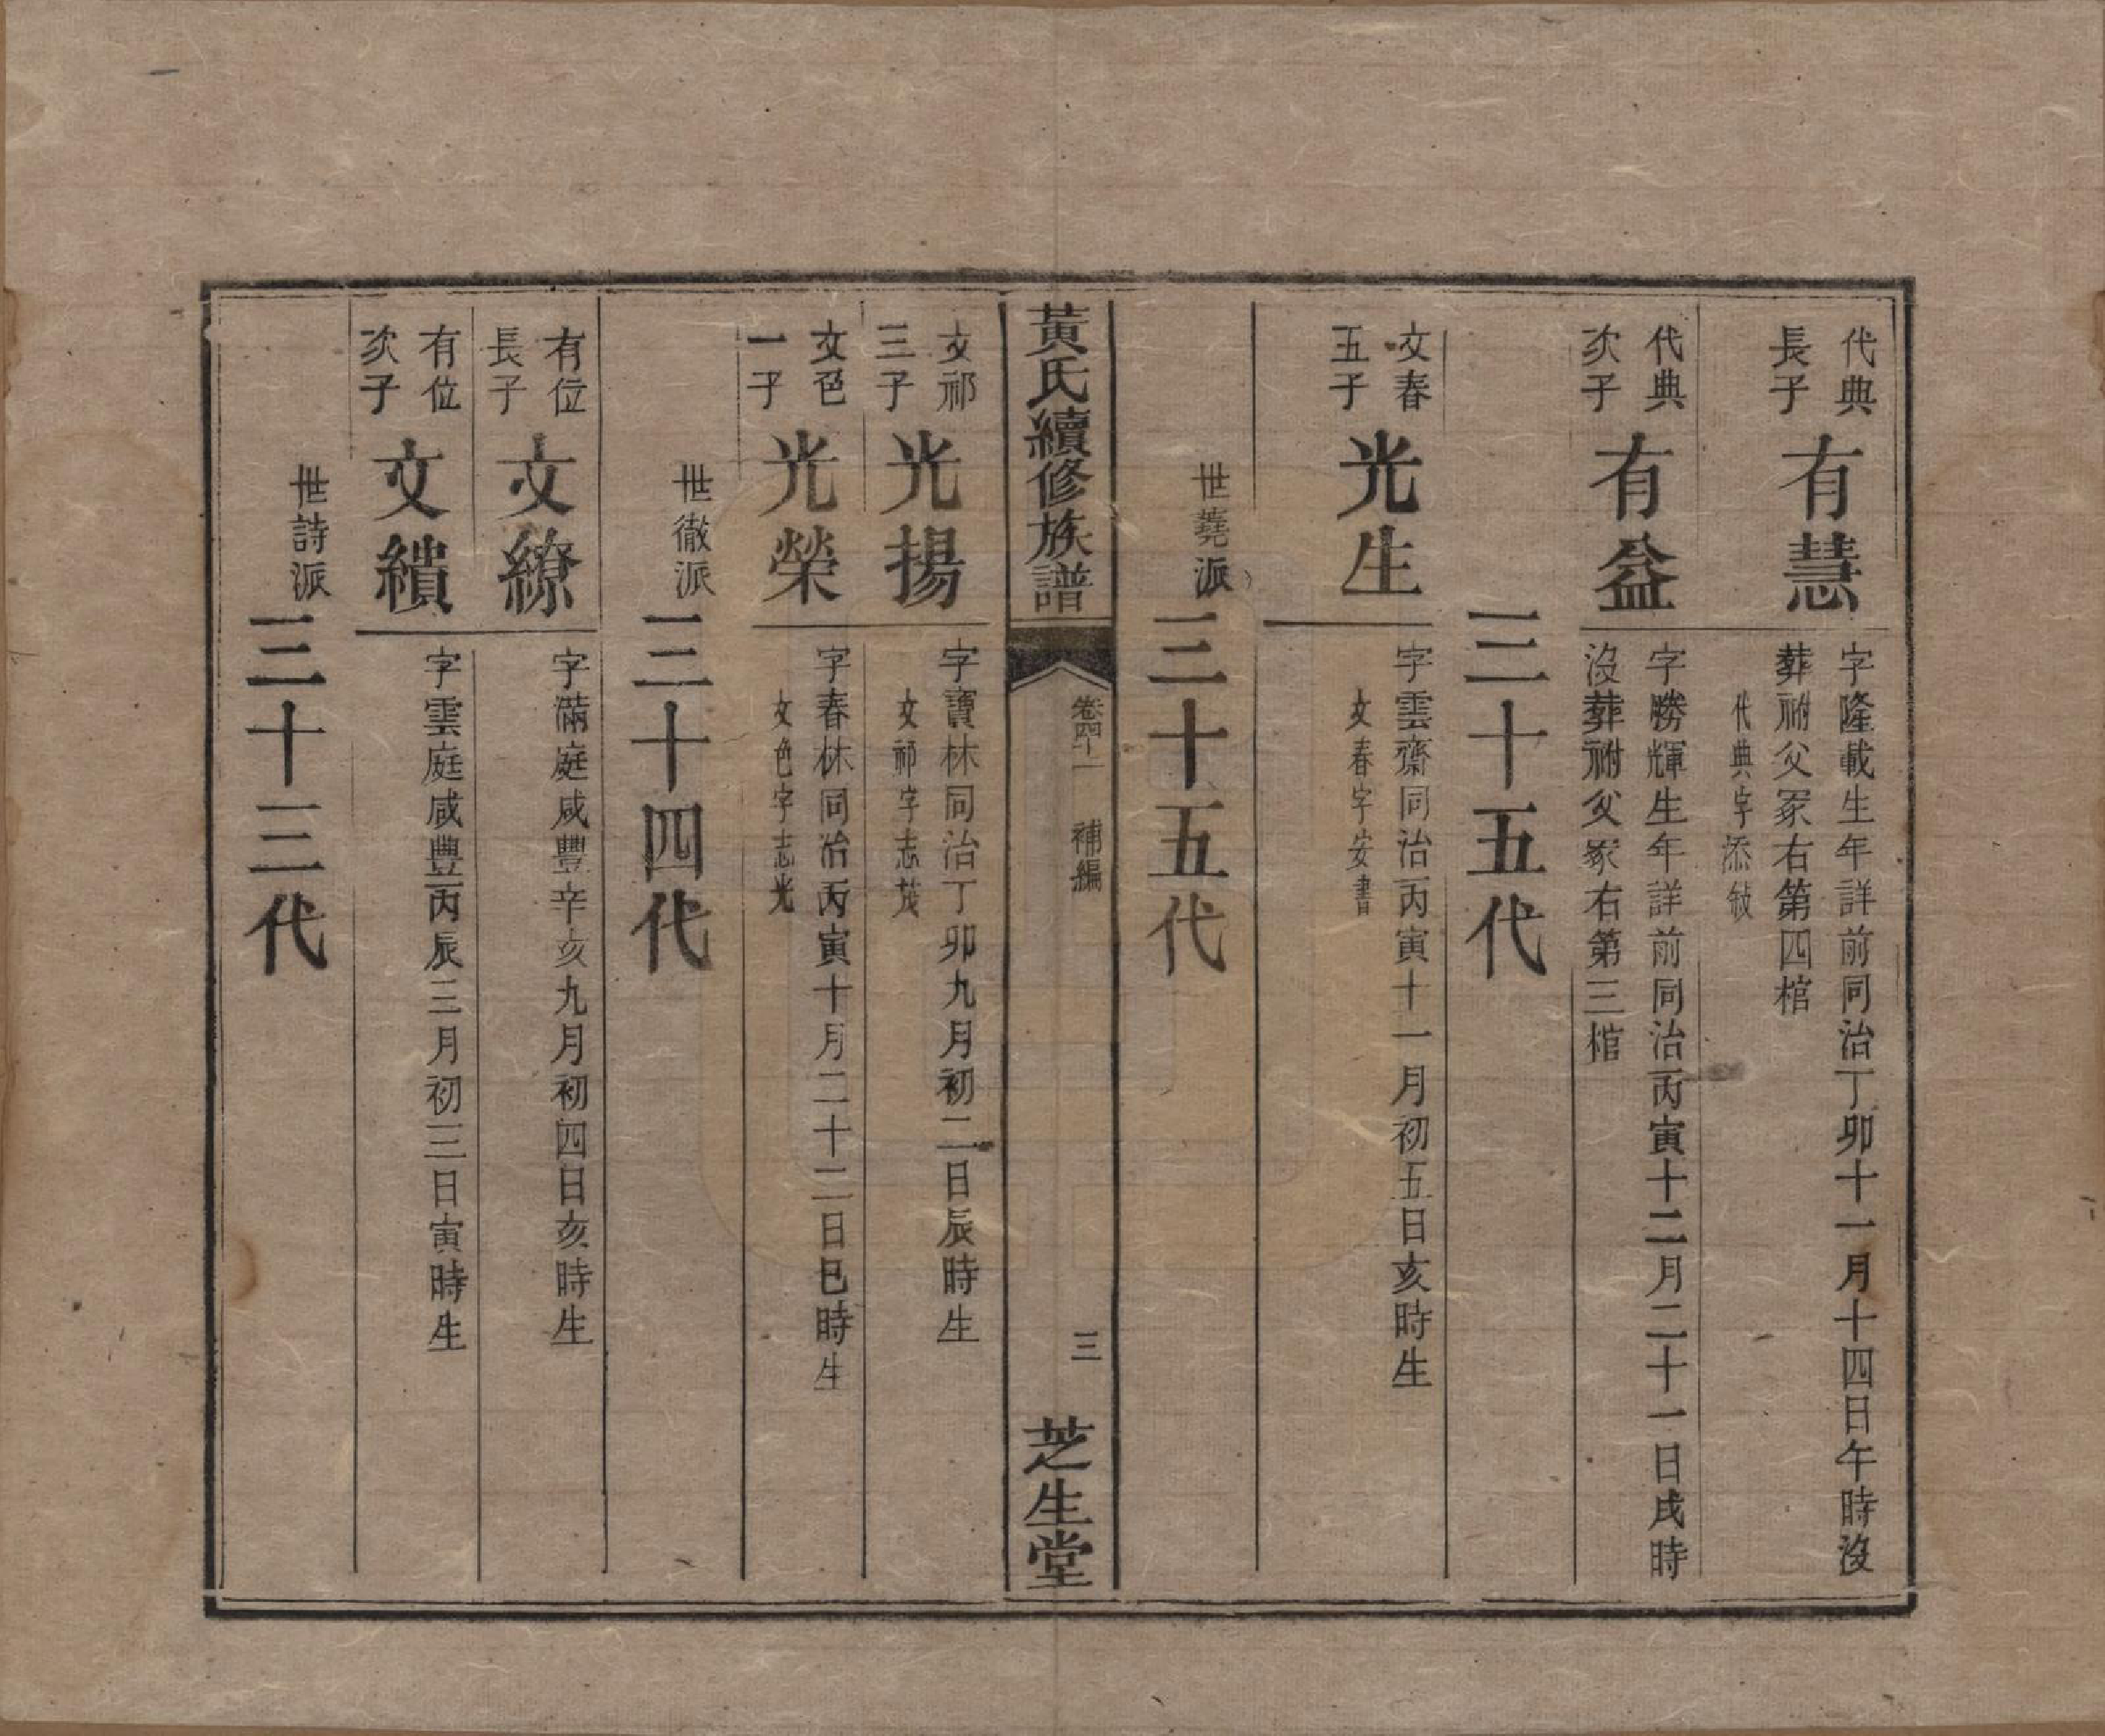 代典
長子
有慧
字隆載生年詳前同治丁卯十一月十四日午時沒
葬祔父冢右第四棺
代典字添敍
代典
次子
有益
字勝輝生年詳前同治丙寅十二月二十一日戌時
沒葬祔父冢右第三棺
三十五代
文春
五子
光生
字雲齋同治丙寅十一月初五日亥時生
文春字安書
世蕘派
三十五代
黃氏續修族譜
卷四十一
補編
三
芝生堂
文祁
三子
光揚
字寶林同治丁卯九月初二日辰時生
文祁字志茂
文色
一子
光榮
字春林同治丙寅十月二十二日巳時生
文色字志光
世徹派
三十四代
有位
長子
文繚
字滿庭咸豐辛亥九月初四日亥時生
有位
次子
文繢
字雲庭咸豐丙辰三月初三日寅時生
世詩派
三十三代